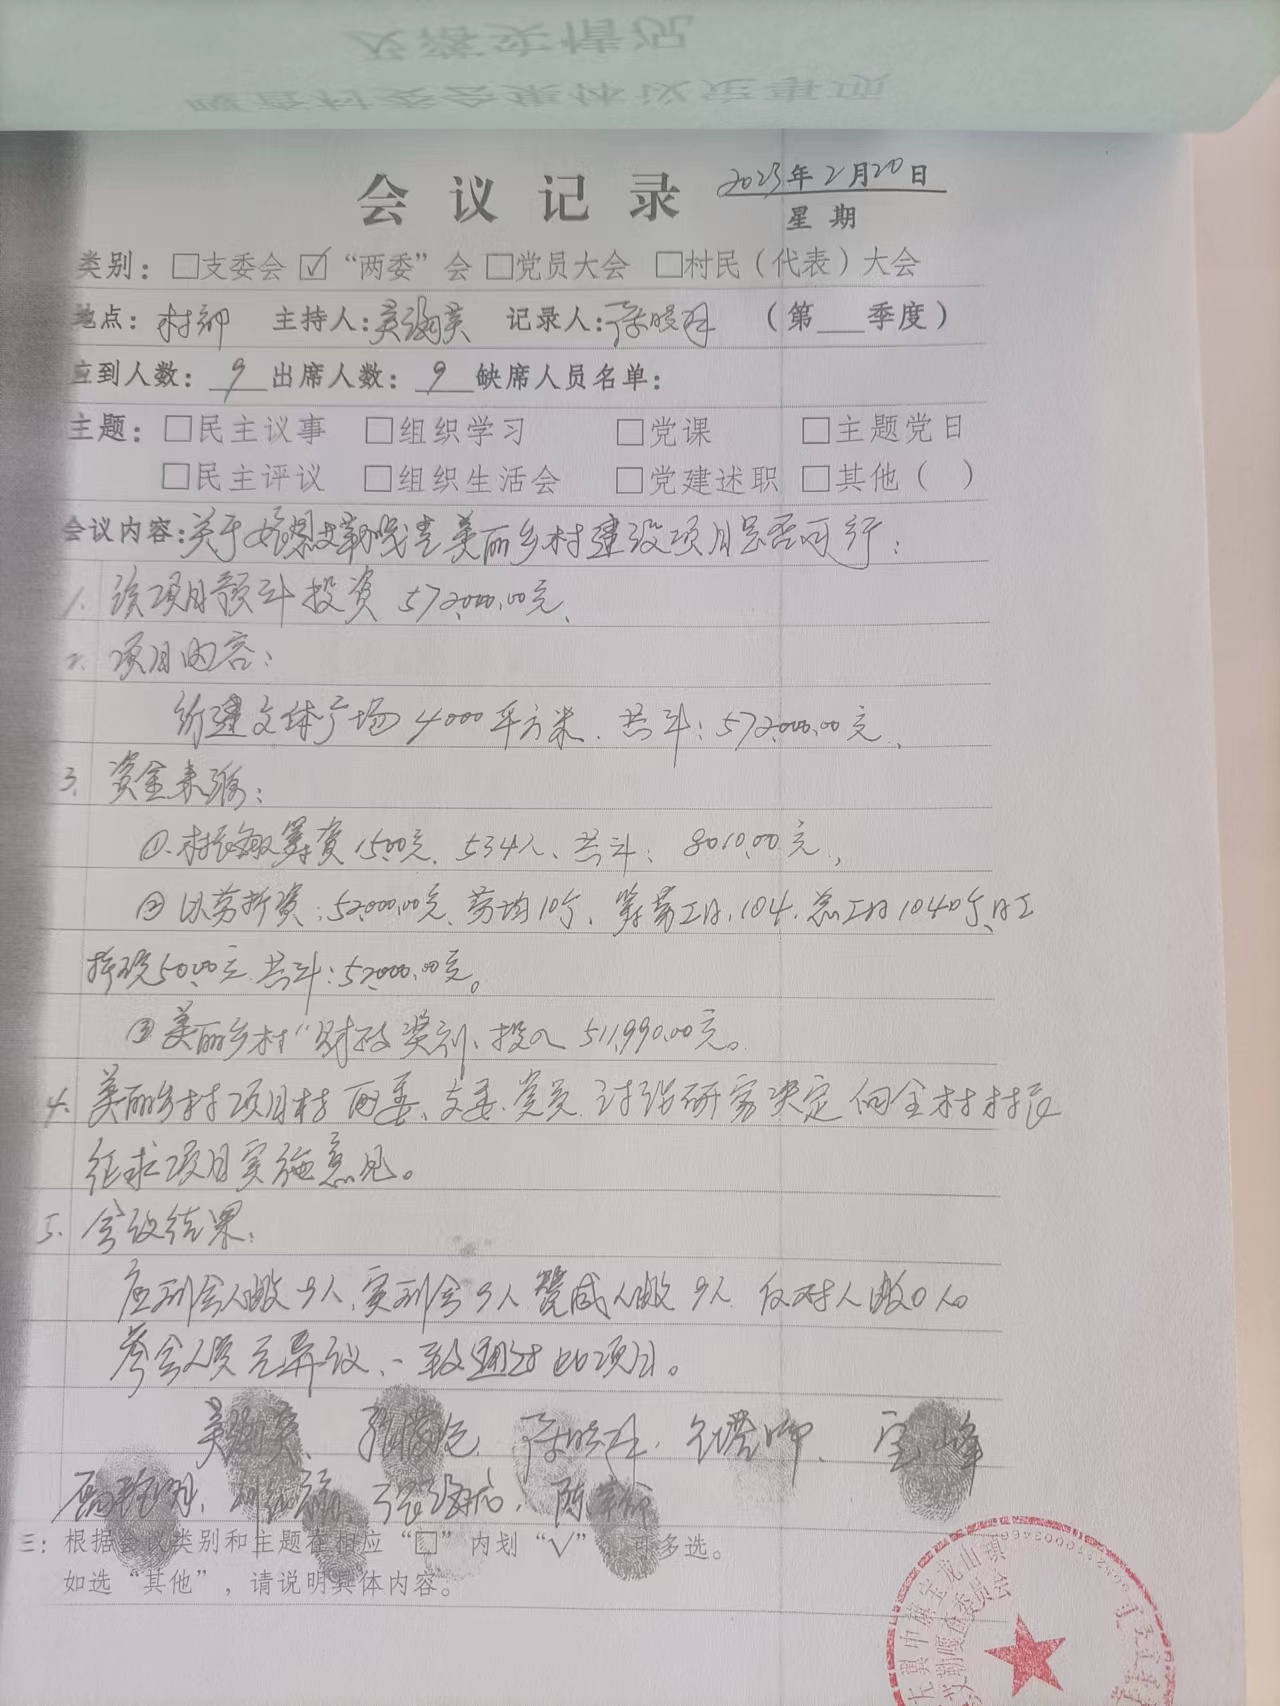 及落实情况
嘎查村委会集体议定事项
会议记录 2023年2月20日
星期
类别：□支委会 ☑“两委”会 □党员大会 □村民（代表）大会
地点：村部 主持人：吴海英 记录人：陈晓科 （第 季度）
应到人数：9 出席人数：9 缺席人员名单：
主题：□民主议事 □组织学习 □党课 □主题党日
□民主评议 □组织生活会 □党建述职 □其他（ ）
会议内容：关于 艾勒嘎查美丽乡村建设项目是否可行：
1. 该项目预计投资 572,000.00元、
2. 项目内容：
新建文体广场 4000平方米. 共计：572,000.00元、
3. 资金来源：
①.村民 筹资15.00元、534人、共计：8010.00元,
② 以劳折资：52,000.00元、劳均10个、筹劳工日、104、总工日1040个、日工
折现50.00元 共计：52,000.00元。
③ 美丽乡村“财政奖补、投入 511,990.00元。
4. 美丽乡村项目村两委、支委、党员 讨论研究决定向全村村民
征求项目实施意见。
5. 会议结果：
应到会人数9人、实到会9人 赞成人数9人 反对人数0人。
参会人员无异议、一致通过此项目。
吴海英、 陈晓科. 宝 峰
三：根据会议类别和主题在相应“□”内划“√”，可多选。
如选“其他”，请说明具体内容。
左翼中旗宝龙山镇
艾勒嘎查委员会